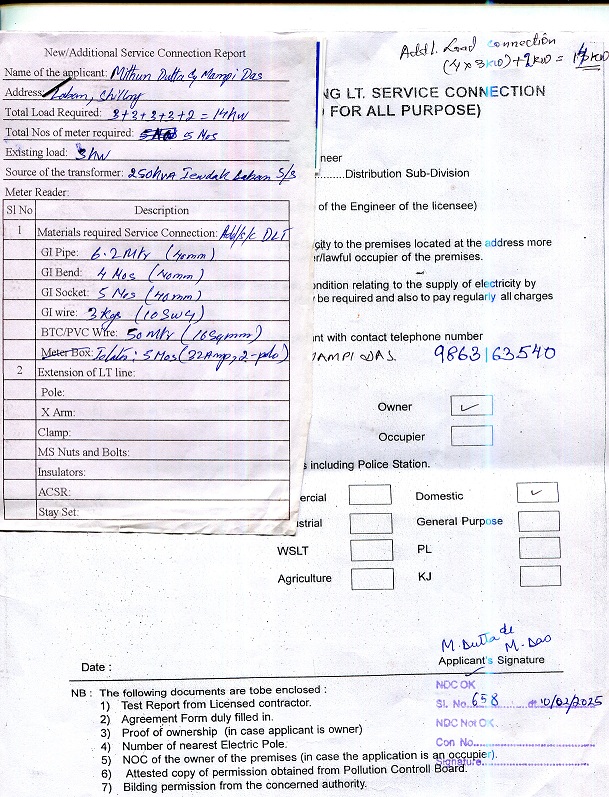 Addl. Load connection
(4 x 3kw) + 2kw = 14kw
New/Additional Service Connection Report
Name of the applicant: Mithun Dutta & Mampi Das
Address: Laban, Shillong
Total Load Required: 3+3+3+3+2 = 14kw
Total Nos of meter required: 5 Nos
Existing load: 3kw
Source of the transformer: 250KVA Laban S/S
Meter Reader:
Sl No Description
1 Materials required Service Connection: Add/s/c DLT
GI Pipe: 6.2 Mtr (40mm)
GI Bend: 4 Nos (40mm)
GI Socket: 5 Nos (40mm)
GI wire: 3 kgs (10 SWG)
BTC/PVC Wire: 50 Mtr (16 Sqmm)
Meter Box: 5 Nos (32 Amp, 2-pole)
2 Extension of LT line:
Pole:
X Arm:
Clamp:
MS Nuts and Bolts:
Insulators:
ACSR:
Stay Set:
NG LT. SERVICE CONNECTION
FOR ALL PURPOSE)
neer
..........Distribution Sub-Division
of the Engineer of the licensee)
city to the premises located at the address more
r/lawful occupier of the premises.
ondition relating to the supply of electricity by
be required and also to pay regularly all charges
nt with contact telephone number
MAMPI DAS. 9863163540
Owner ✓
Occupier
s including Police Station.
ercial Domestic ✓
ustrial General Purpose
WSLT PL
Agriculture KJ
M. Dutta de
M. Das
Applicant's Signature
Date :
NDC OK
Sl. No. 658 dt 10/02/2025
NDC Not OK
Con No.
Signature
NB : The following documents are tobe enclosed :
1) Test Report from Licensed contractor.
2) Agreement Form duly filled in.
3) Proof of ownership (in case applicant is owner)
4) Number of nearest Electric Pole.
5) NOC of the owner of the premises (in case the application is an occupier).
6) Attested copy of permission obtained from Pollution Controll Board.
7) Bilding permission from the concerned authority.